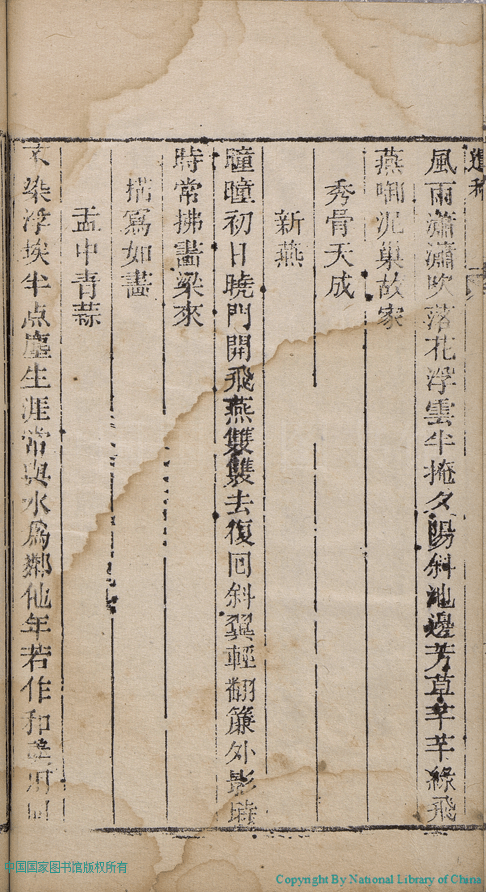 風雨瀟瀟吹落花浮雲半掩夕陽斜池邊芳草芊芊綠飛
燕啣泥巢故家
秀骨天成
新燕
曈曈初日曉門開飛燕雙雙去復回斜翼輕翻簾外影
時常拂畵梁來
描寫如畵
盂中青蒜
不染浮埃半点塵生涯常與水爲鄰他年若作和羹用
中国国家图书馆版权所有
Copyright By National Library of China